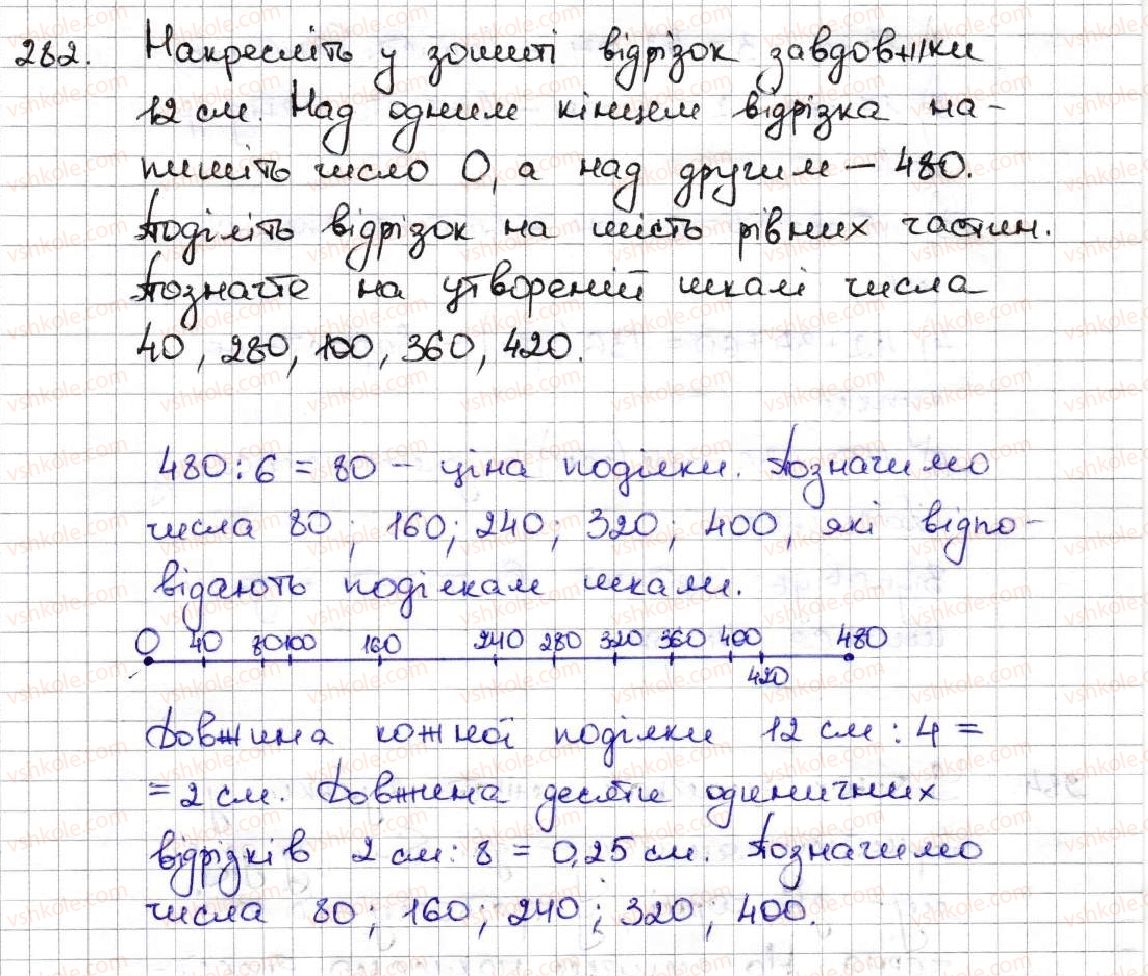 282. Накресліть у зошиті відрізок завдовжки
12 см. Над одним кінцем відрізка на-
пишіть число 0, а над другим – 480.
Поділіть відрізок на шість рівних частин.
Позначте на утвореній шкалі числа
40, 280, 100, 360, 420.
480 : 6 = 80 – ціна поділки. Позначимо
числа 80; 160; 240; 320; 400, які відпо-
відають поділкам шкали.
0 40 80 100 160 240 280 320 360 400 480
420
Довжина кожної поділки 12 см : 4 =
= 2 см. Довжина десяти одиничних
відрізків 2 см : 8 = 0,25 см. Позначимо
числа 80; 160; 240; 320; 400.